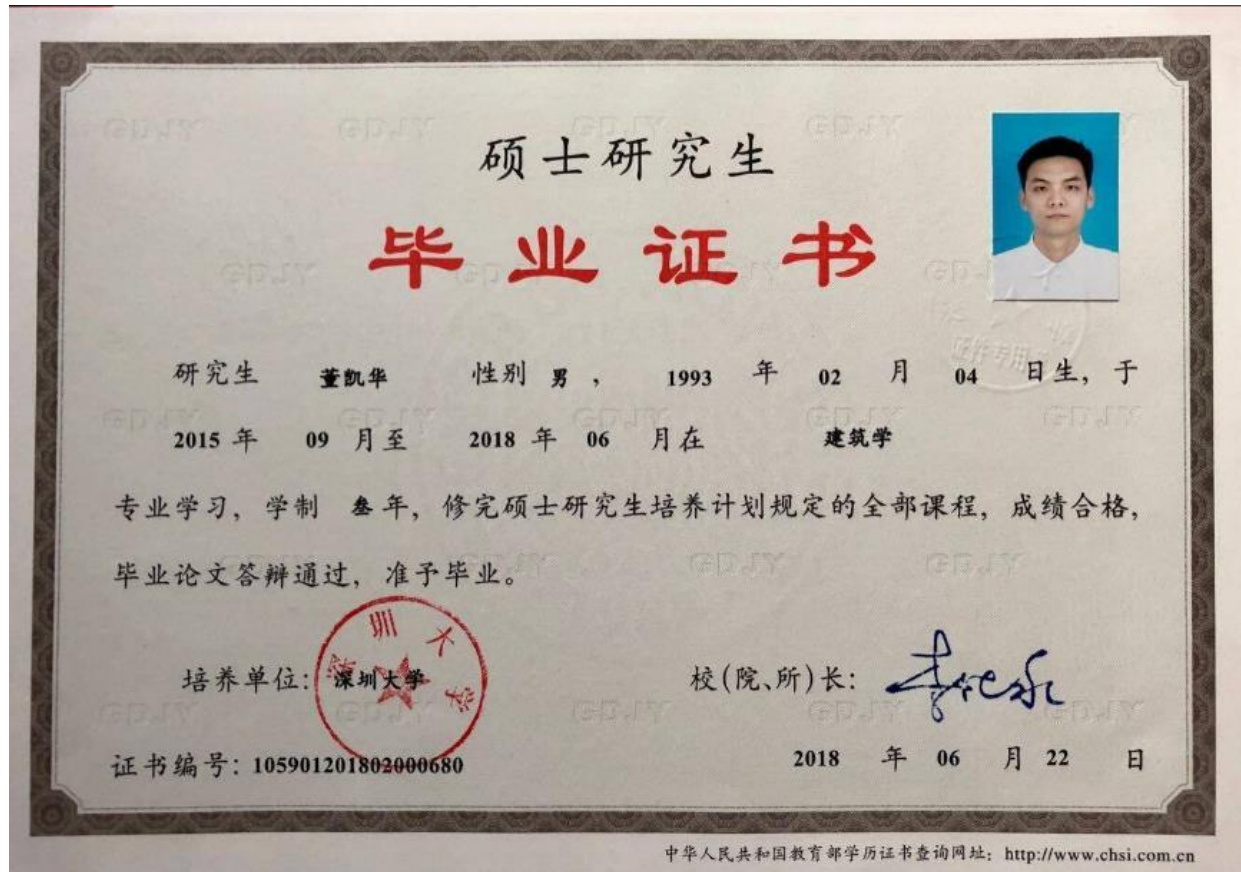 硕士研究生
毕业证书
研究生 董凯华 性别 男 , 1993 年 02 月 04 日生, 于
2015 年 09 月至 2018 年 06 月在 建筑学
专业学习, 学制 叁年, 修完硕士研究生培养计划规定的全部课程, 成绩合格,
毕业论文答辩通过, 准予毕业。
深圳大学
培养单位: 深圳大学 校(院、所)长:
证书编号: 105901201802000680 2018 年 06 月 22 日
中华人民共和国教育部学历证书查询网址: http://www.chsi.com.cn